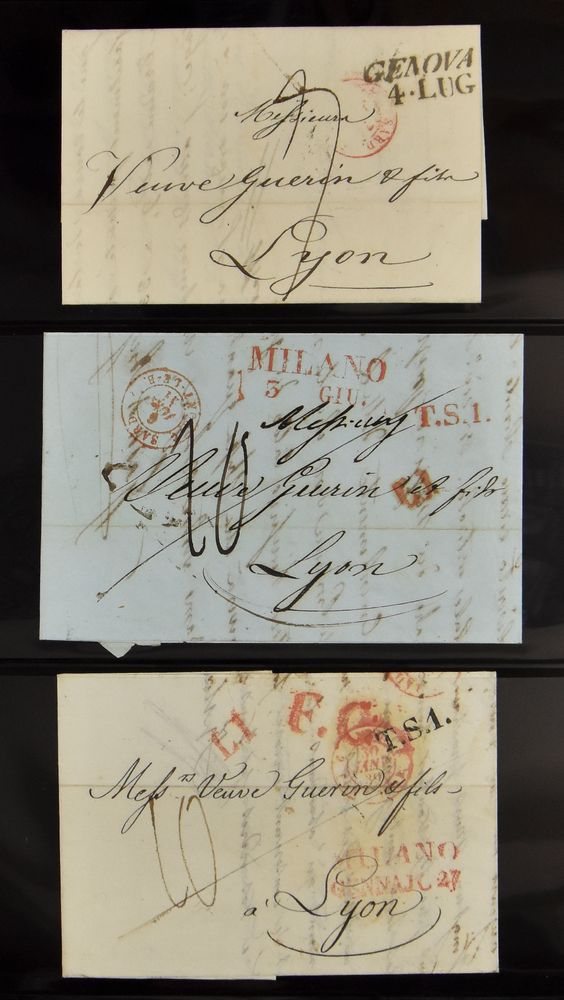 GENOVA
4·LUG
SARD.
Messieurs
Veuve Guerin & fils
Lyon
MILANO
3 GIU.
T.S.1.
Messieurs
L1
Veuve Guerin et fils
Lyon
L1
F.G.
T.S.1.
Mess.rs Veuve Guerin & fils
10
MILANO
GENNAJO 27
à Lyon